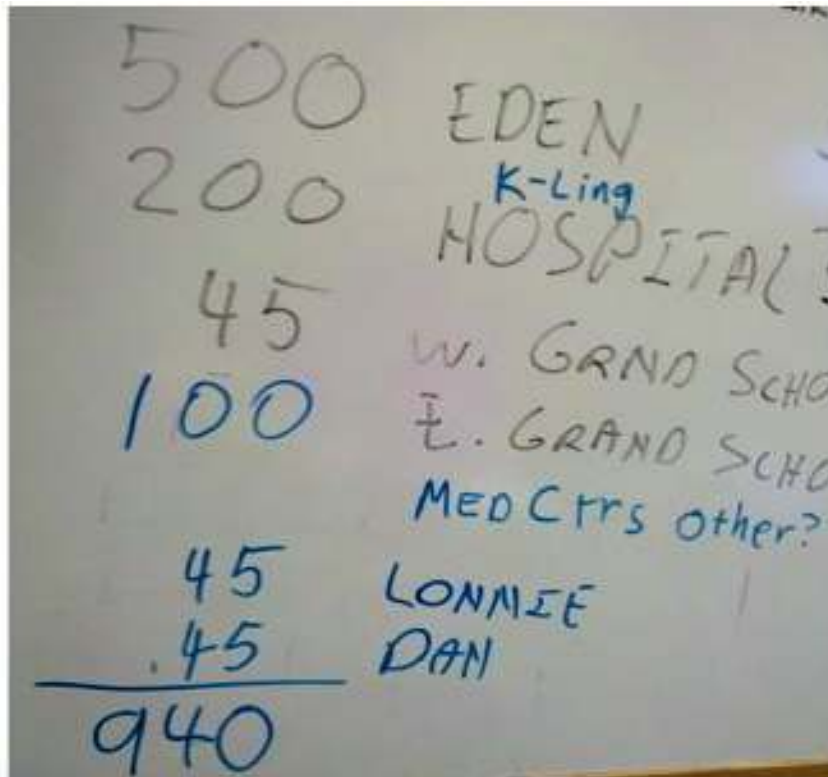 500 EDEN
K-Ling
200 HOSPITAL
45 W. GRND SCHO
100 E. GRAND SCHO
MED Ctrs Other?
45 LONMIE
.45 DAN
940